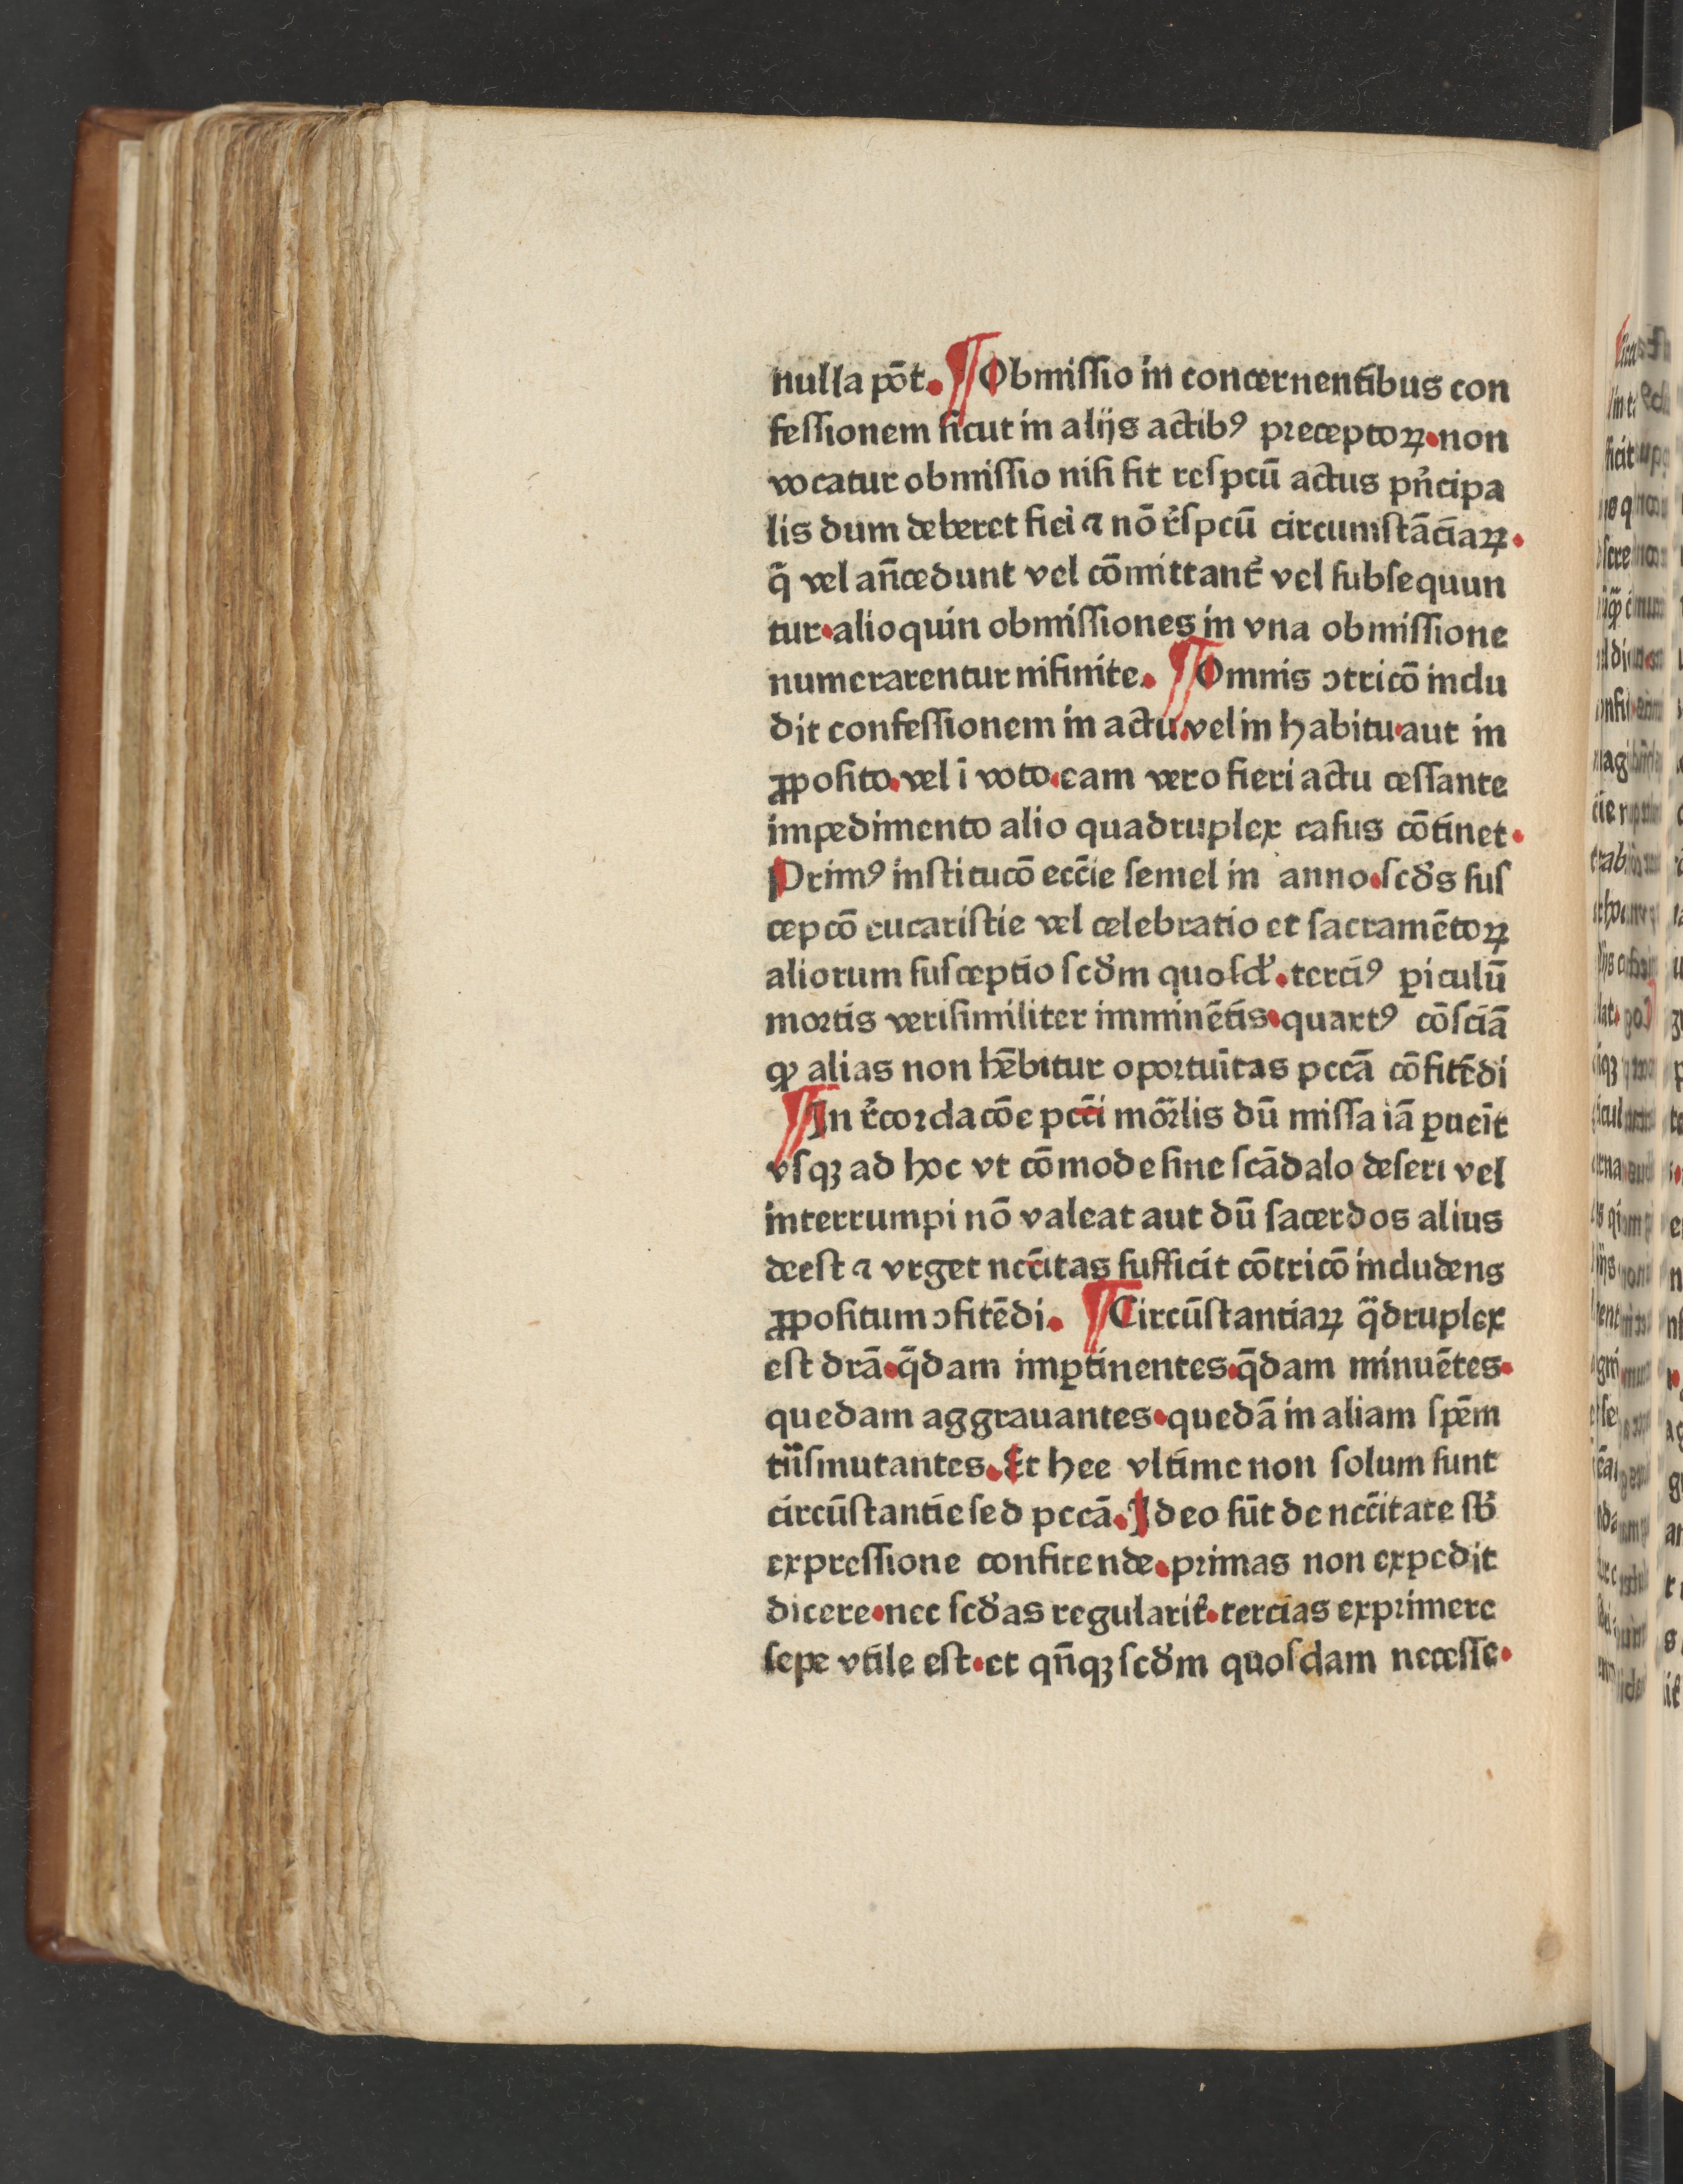 nulla pōt. ¶ Obmiſſio in concernentibus con
feſſionem ſicut in alijs actibꝰ preceptoꝝ. non
vocatur obmiſſio niſi ſit reſpcū actus pn̄cipa
lis dum deberet fieri ⁊ nō rſ̄pcū circumſtāciaꝝ.
q̄ vel an̄cedunt vel cōmittant᷑ vel ſubſequun
tur. alioquin obmiſſiones in vna obmiſſione
numerarentur nifinite. ¶ Omnis ↄtricō inclu
dit confeſſionem in actu. vel in habitu. aut in
ꝓpoſito. vel ī voto. eam vero fieri actu ceſſante
impedimento alio quadruplex caſus cōtinet.
Primꝰ inſtitucō ecc̄ie ſemel in anno. ſcd̄s ſuſ
cepcō eucariſtie vel celebratio et ſacramētoꝝ
aliorum ſuſceptio ſcd̄m quoſd᷑. terciꝰ ꝑiculū
mortis veriſimiliter imminētis. quartꝰ cōſciā
ꝙ alias non hēbitur oportuītas pccā cōfitēdi
¶ In r̄cordacōe pcc̄i mor̄lis dū miſſa iā ꝑueīt
vſqꝫ ad hoc vt cōmode ſine ſcādalo deſeri vel
interrumpi nō valeat aut dū ſacerdos alius
deeſt ⁊ vrget ncc̄itas ſufficit cōtricō includens
ꝓpoſitum ↄfitēdi. ¶ Circūſtantiaꝝ q̄druplex
eſt drā. q̄dam imꝑtinentes. q̄dam minuētes.
quedam aggrauantes. quedā in aliam ſpēm
tn̄ſmutantes. Et hee vltime non ſolum ſunt
circūſtantie ſed pccā. Ideo ſūt de ncc̄itate ſb᷑
expreſſione confitende. primas non expedit
dicere. nec ſcd̄as regularit᷑. tercias exprimere
ſepe vtile eſt. et qn̄qꝫ ſcd̄m quoſdam neceſſe.